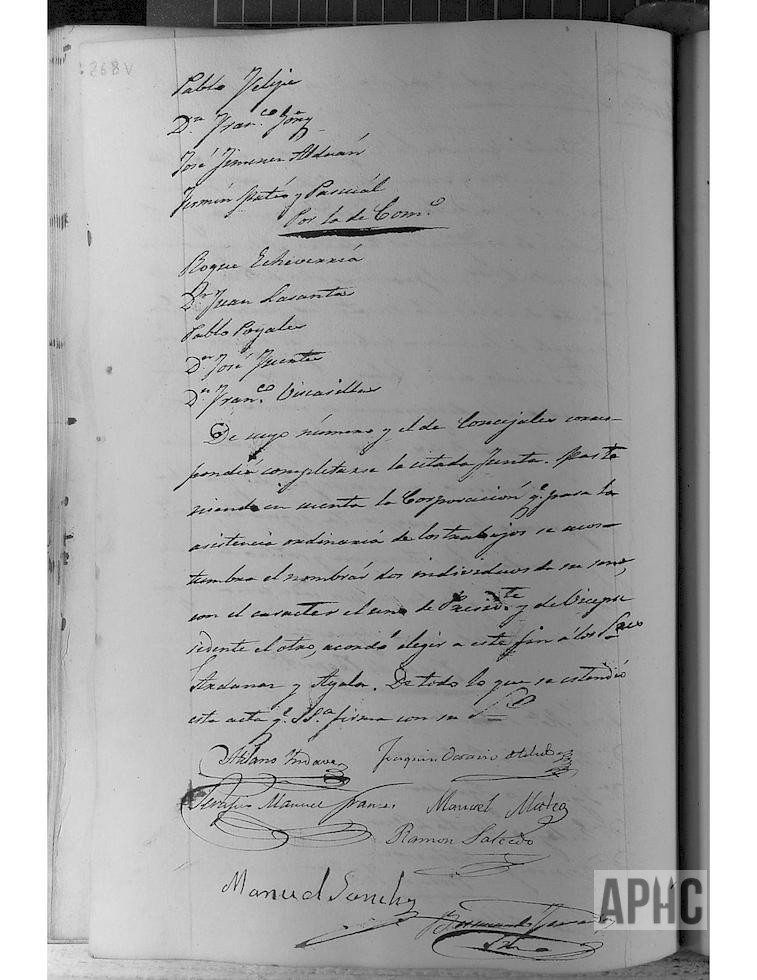 268V
Pablo Felipe
Dn. Fran.co
José Jimenez Alduán
Fermín Mateo y Pascual
Por la de Com.o
Roque Echeverria
Dn. Juan Lasanta
Pablo Poyales
Dn. José Fuente
Dn. Fran.co Viscasillas
De cuyo número y el de Concejales corres-
pondía completarse la citada Junta. Mas te
niendo en cuenta la Corporación q.e para la
asistencia ordinaria de los trabajos se acos-
tumbra el nombrar dos individuos de su seno,
con el caracter el uno de Presid.te y de Vicepre
sidente el otro, acordó elejir a este fin á los S.res
y Ayala. De todo lo que se estendió
esta acta q.e S.Sa. firma con su
Joaquin
Manuel Mateo
Manuel
Ramon Salcedo
Manuel Sanchez
APHC